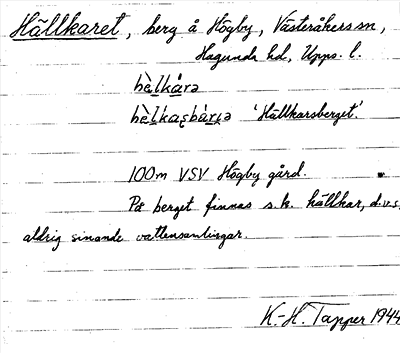 Hällkaret, berg å Högby, Västeråkers sn,
Hagunda hd, Upps. l.
hèlkårə
hèlkaʂbàrjə 'Hällkarsberget.'
100m VSV Högby gård.
På berget finnas s.k. hällkar, d.v.s.
aldrig sinande vattensamlingar.
K.-H. Tapper 1944